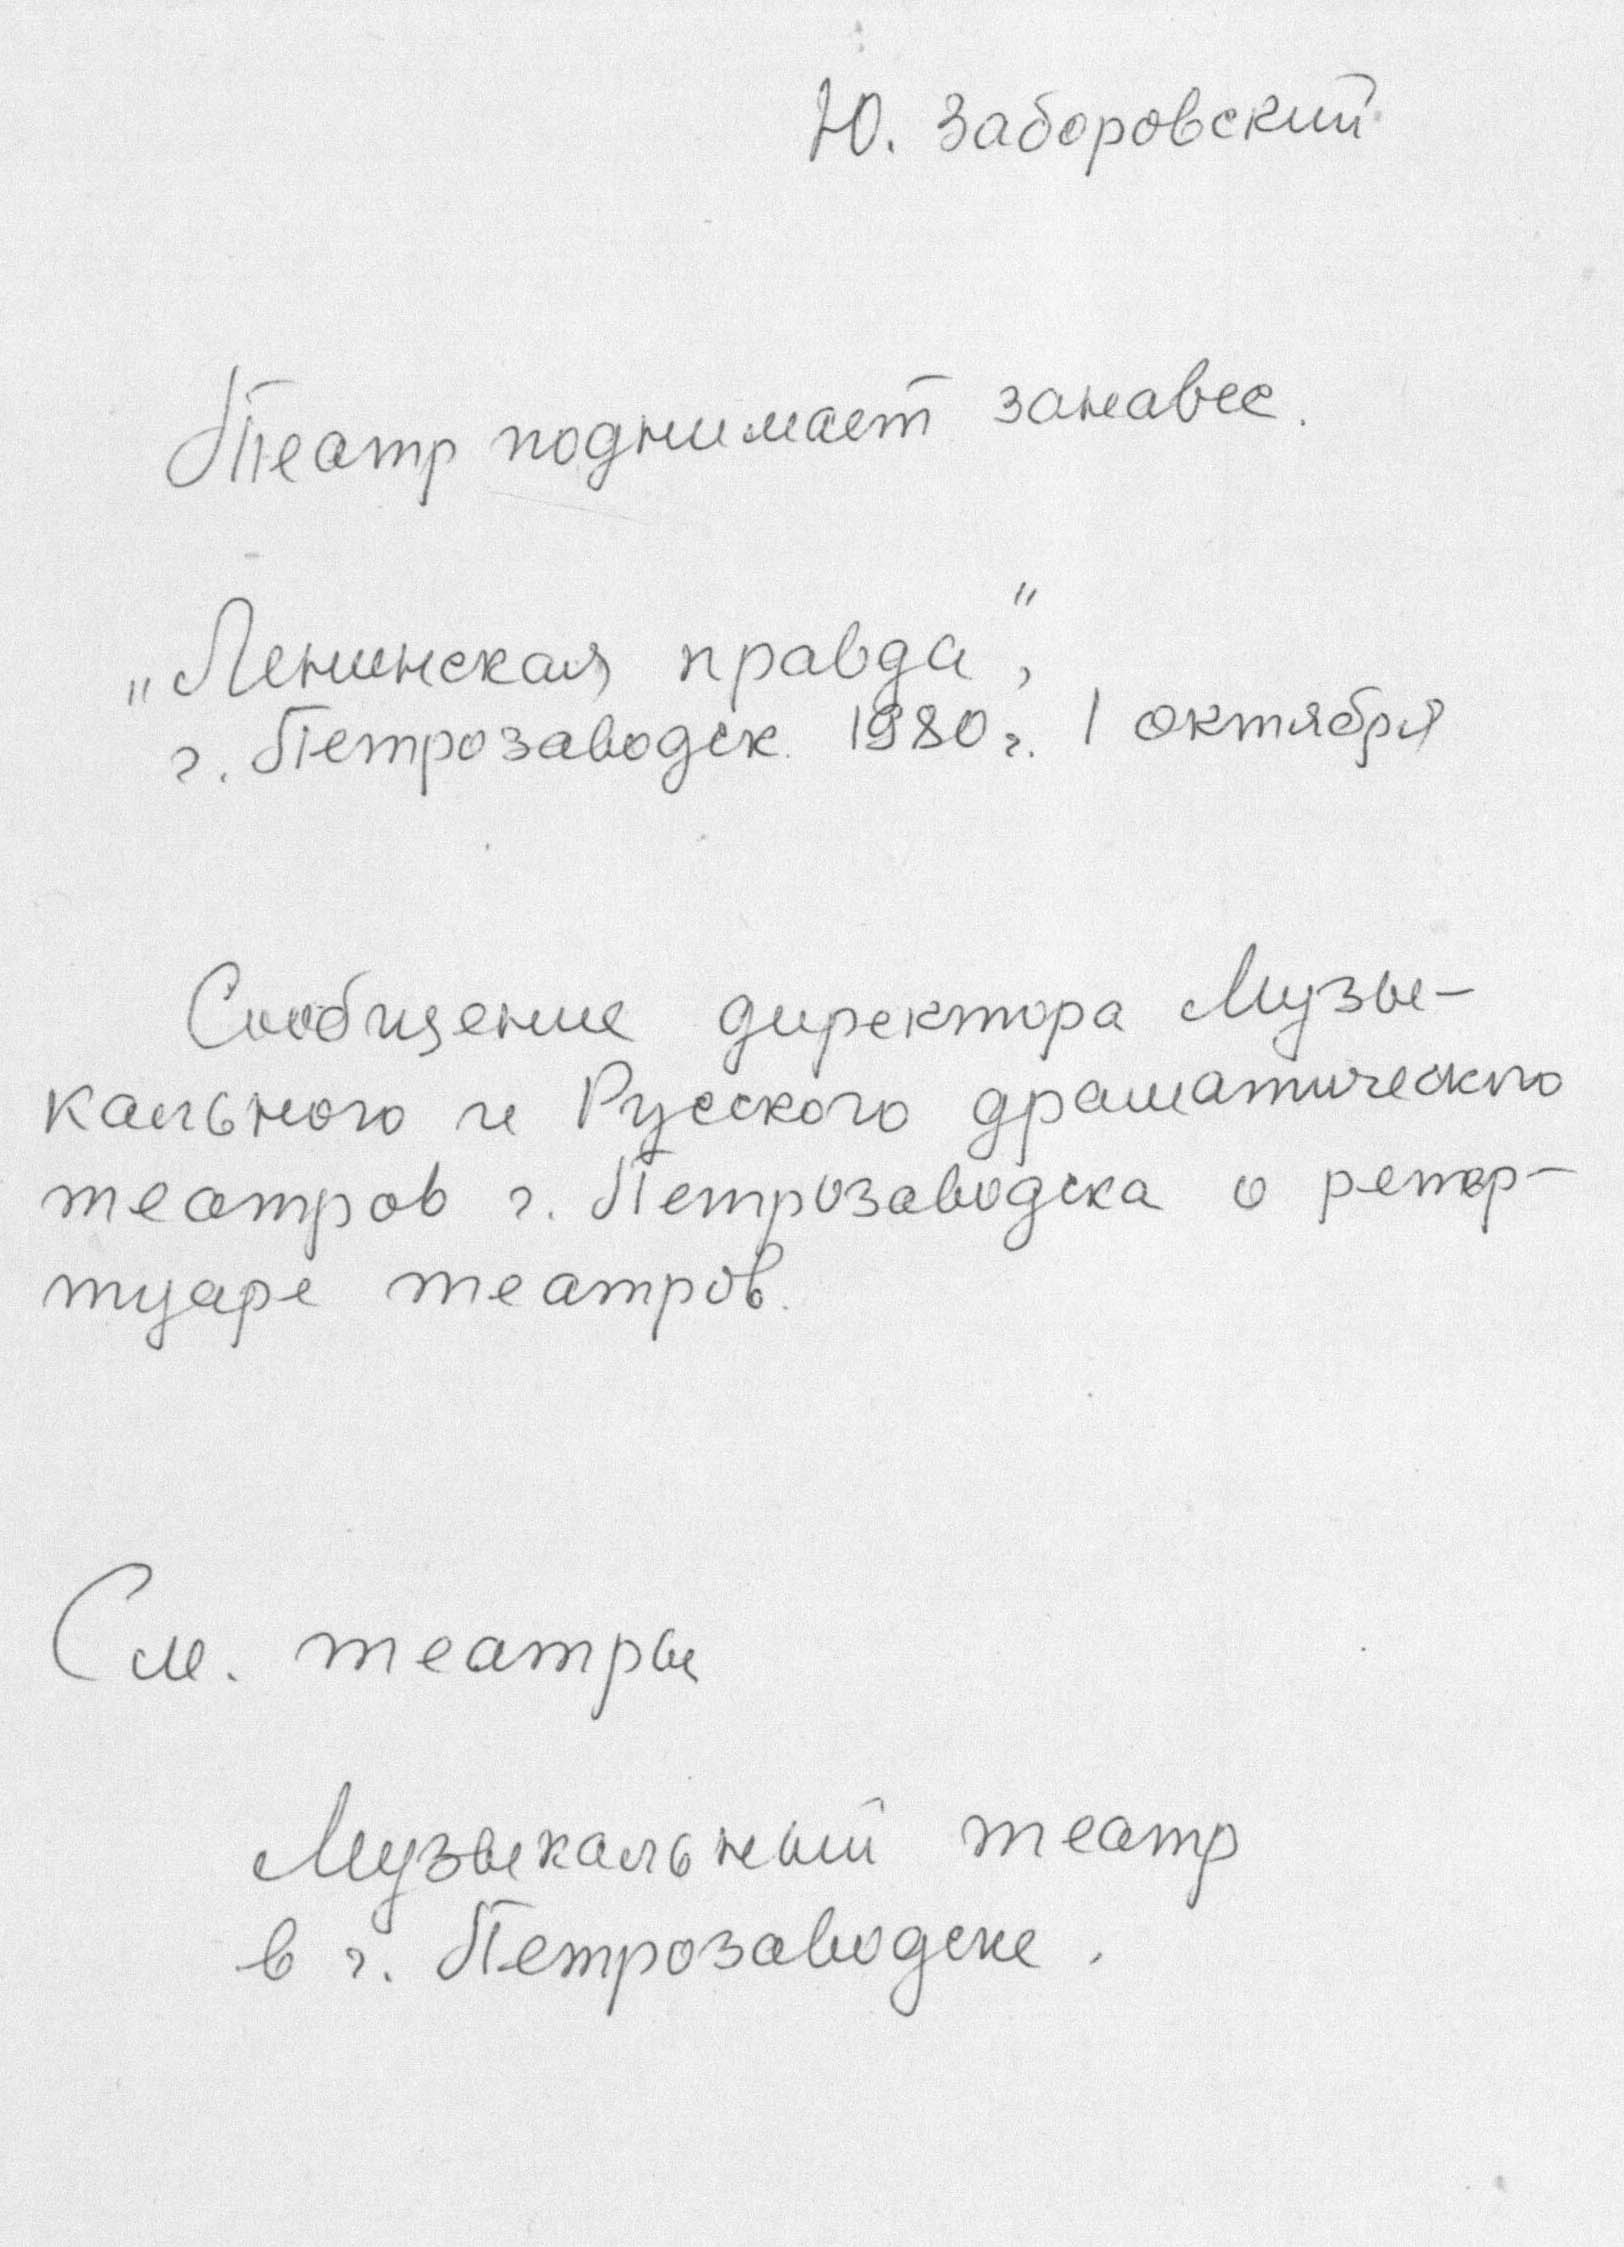 Ю. Заборовский
Театр поднимает занавес.
"Ленинская правда",
г. Петрозаводск. 1980 г. 1 октября
Сообщение директора Музы-
кального и Русского драматического
театров г. Петрозаводска о репер-
туаре театров.
См. театры
Музыкальный театр
в г. Петрозаводске.